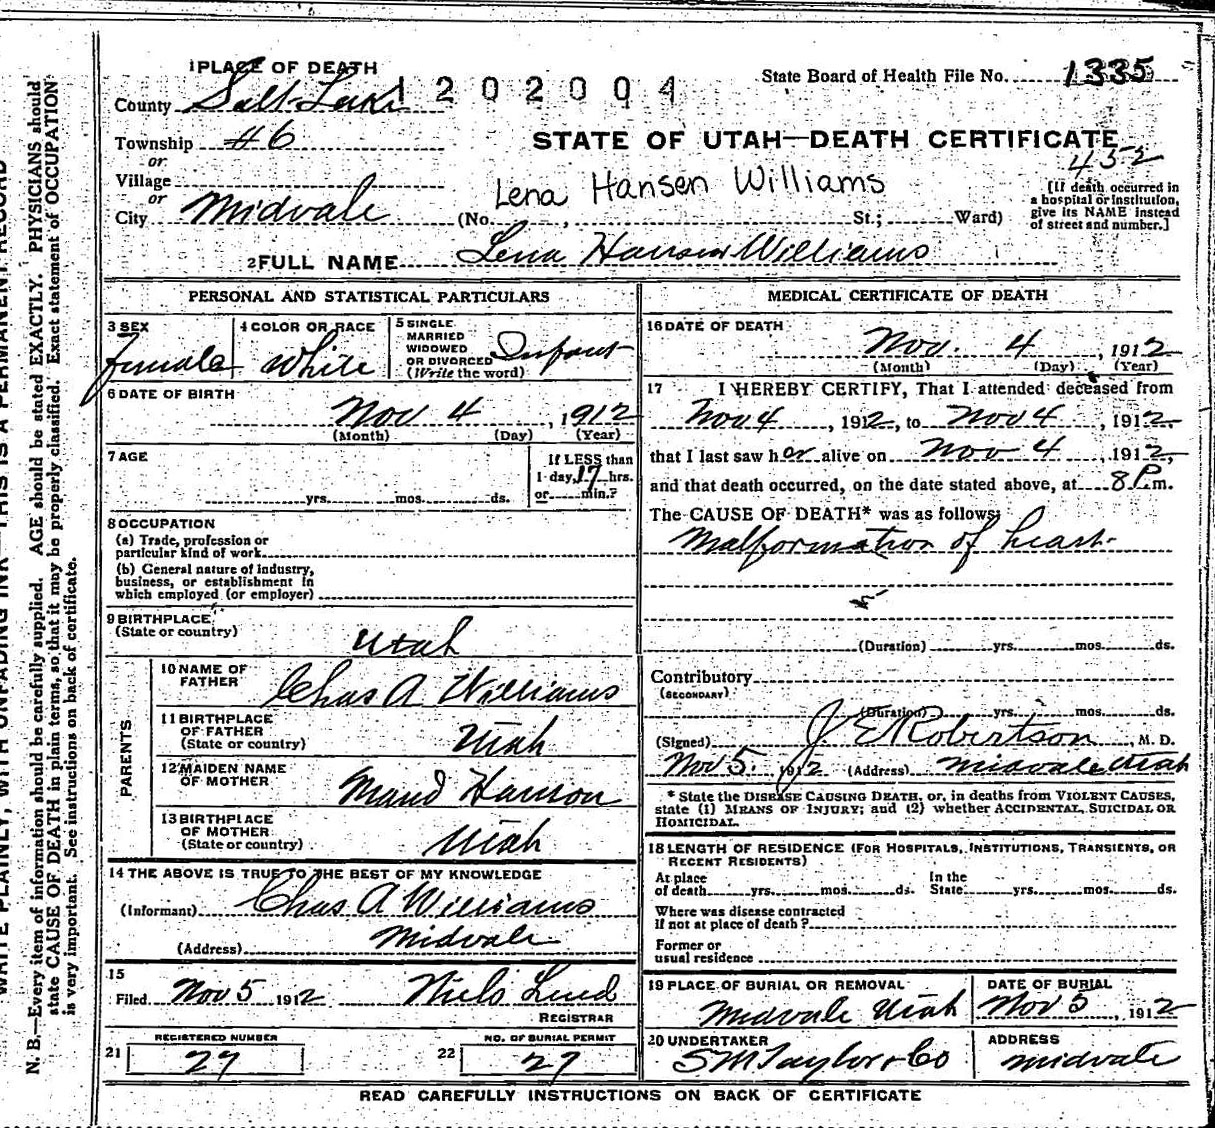 1 PLACE OF DEATH
1202004
State Board of Health File No. 1335
County Salt Lake
Township #6
or
Village
or
City Midvale
STATE OF UTAH—DEATH CERTIFICATE
452
Lena Hansen Williams
(No. , St.; Ward)
[If death occurred in
a hospital or institution,
give its NAME instead
of street and number.]
2 FULL NAME Lena Hanson Williams
PERSONAL AND STATISTICAL PARTICULARS
3 SEX
Female
4 COLOR OR RACE
White
5 SINGLE
MARRIED
WIDOWED
OR DIVORCED
(Write the word)
Infant
6 DATE OF BIRTH
Nov 4, 1912
(Month) (Day) (Year)
7 AGE
yrs. mos. ds.
If LESS than
1 day, 17 hrs.
or min.?
8 OCCUPATION
(a) Trade, profession or
particular kind of work
(b) General nature of industry,
business, or establishment in
which employed (or employer)
9 BIRTHPLACE
(State or country)
Utah
PARENTS
10 NAME OF
FATHER
Chas A Williams
11 BIRTHPLACE
OF FATHER
(State or country)
Utah
12 MAIDEN NAME
OF MOTHER
Maud Hanson
13 BIRTHPLACE
OF MOTHER
(State or country)
Utah
14 THE ABOVE IS TRUE TO THE BEST OF MY KNOWLEDGE
(Informant) Chas A Williams
(Address) Midvale
15
Filed Nov 5 1912 Niels Lind
REGISTRAR
21 REGISTERED NUMBER
27
22 NO. OF BURIAL PERMIT
27
MEDICAL CERTIFICATE OF DEATH
16 DATE OF DEATH
Nov. 4, 1912
(Month) (Day) (Year)
17 I HEREBY CERTIFY, That I attended deceased from
Nov 4, 1912, to Nov 4, 1912
that I last saw her alive on Nov 4, 1912,
and that death occurred, on the date stated above, at 8 P.m.
The CAUSE OF DEATH* was as follows:
Malformation of heart.
(Duration) yrs. mos. ds.
Contributory
(SECONDARY)
(Duration) yrs. mos. ds.
(Signed) J E Robertson, M. D.
Nov 5. 1912 (Address) Midvale Utah
* State the DISEASE CAUSING DEATH, or, in deaths from VIOLENT CAUSES,
state (1) MEANS OF INJURY; and (2) whether ACCIDENTAL, SUICIDAL OR
HOMICIDAL.
18 LENGTH OF RESIDENCE (FOR HOSPITALS, INSTITUTIONS, TRANSIENTS, OR
RECENT RESIDENTS)
At place
of death yrs. mos. ds.
In the
State yrs. mos. ds.
Where was disease contracted
if not at place of death?
Former or
usual residence
19 PLACE OF BURIAL OR REMOVAL
Midvale Utah
DATE OF BURIAL
Nov 5, 1912
20 UNDERTAKER
S M Taylor & Co
ADDRESS
Midvale
READ CAREFULLY INSTRUCTIONS ON BACK OF CERTIFICATE
WRITE PLAINLY, WITH UNFADING INK—THIS IS A PERMANENT RECORD
N. B.—Every item of information should be carefully supplied. AGE should be stated EXACTLY. PHYSICIANS should
state CAUSE OF DEATH in plain terms, so that it may be properly classified. Exact statement of OCCUPATION
is very important. See instructions on back of certificate.